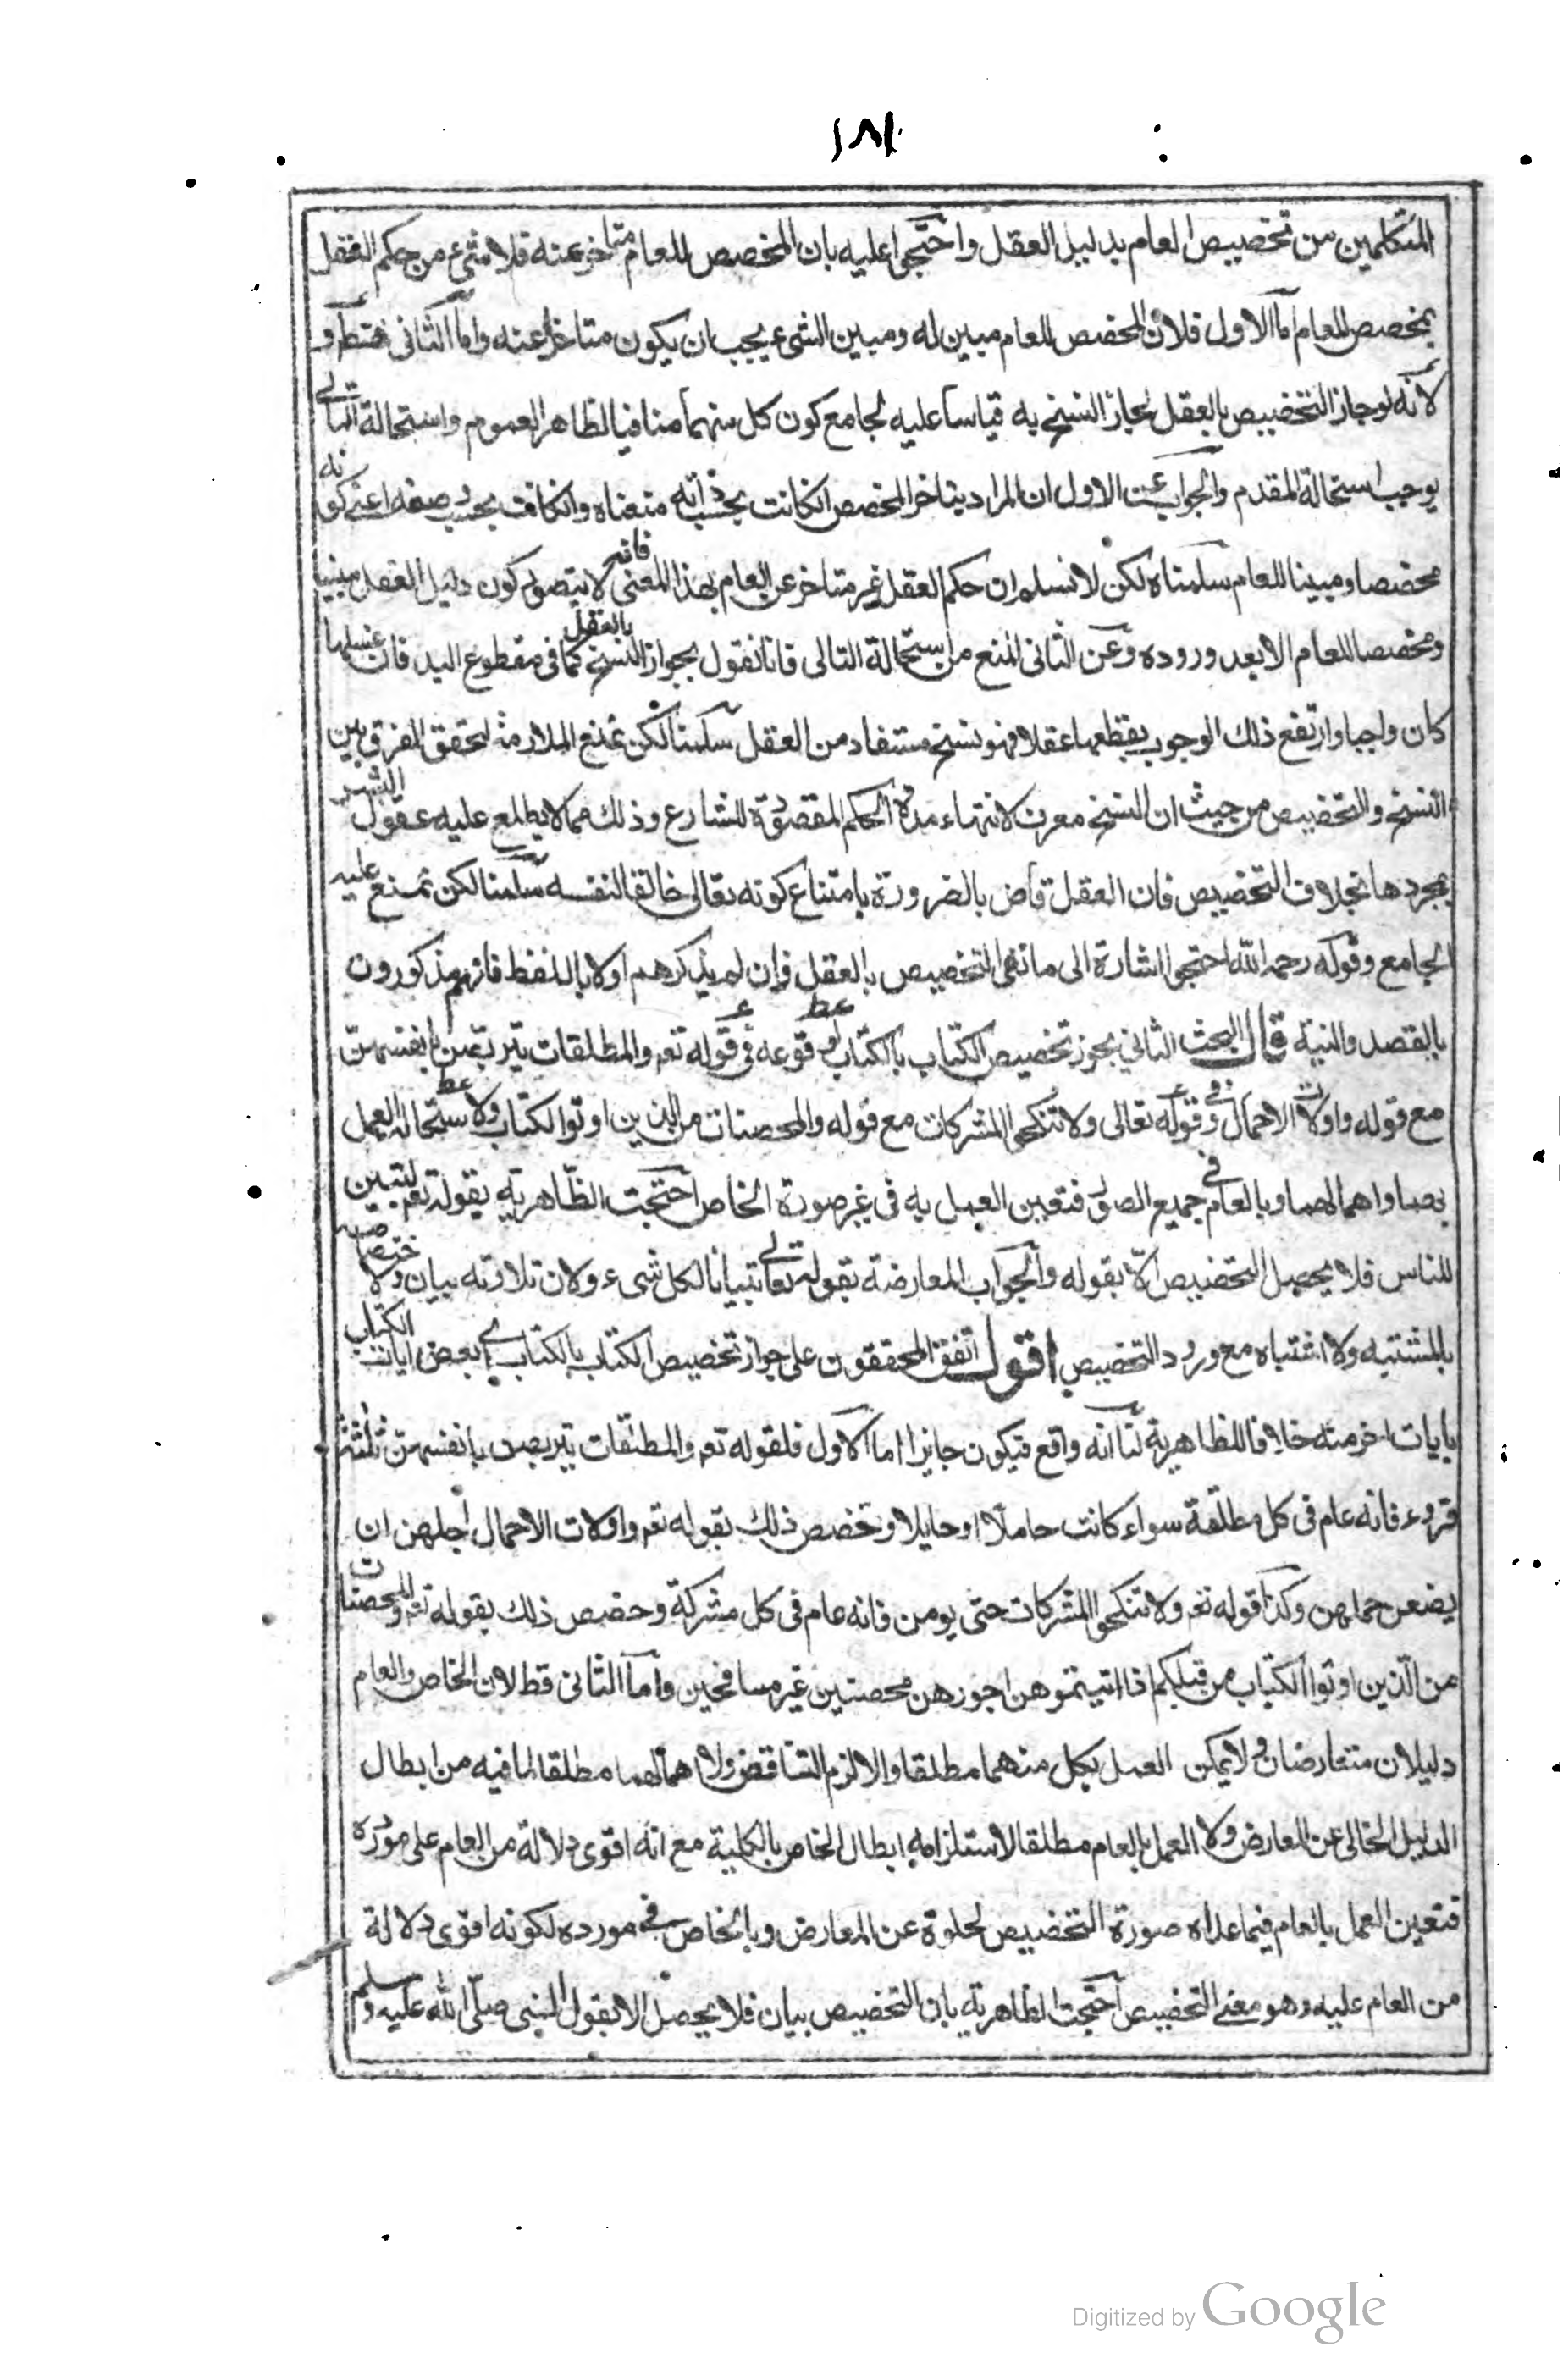 ١٨٢
المتكلمين من تخصيص العام بدليل العقل واحتجوا عليه بان المخصص للعام متاخر عنه فلا شىء من حكم العقل
بمخصص للعام اما الاول فلان المخصص للعام مبين له ومبين الشىء يجب ان يكون متاخرا عنه واما الثانى فظ و
لانه لو جاز التخصيص بالعقل لجاز النسخ به قياسا عليه لجامع كون كل منهما منافيا لظاهر العموم واستحالة التالى
يوجب استحالة المقدم والجواب عن الاول ان المراد بتاخر المخصص انكانت بحسب ذاته منعناه وانكانت بحسب وصفه اعنى كونه
مخصصا ومبينا للعام سلمناه لكن لا نسلم ان حكم العقل غير متاخر عن العام بهذا المعنى فانه لا يتصور كون دليل العقل مبينا
ومخصصا للعام الا بعد وروده وعن الثانى المنع من استحالة التالى فانا نقول بجواز النسخ بالعقل كما فى مقطوع اليد فان غسلها
كان واجبا وارتفع ذلك الوجوب بقطعها عقلا فهو نسخ مستفاد من العقل سلمنا لكن نمنع الملازمة لتحقق الفرق بين
النسخ والتخصيص من حيث ان النسخ معرف لانتهاء مدة الحكم المقصودة للشارع وذلك مما لا يطلع عليه عقول البشر
بمجردها بخلاف التخصيص فان العقل قاض بالضرورة بامتناع كونه تعالى خالقا لنفسه سلمنا لكن نمنع علية
الجامع وقوله رحمه الله احتجوا اشارة الى مانعى التخصيص بالعقل وان لم يذكرهم اولا باللفظ فانهم مذكورون
بالقصد والنية قال البحث الثانى يجوز تخصيص الكتاب بالكتاب لوقوعه فى قوله تع والمطلقات يتربصن بانفسهن
مع قوله واولات الاحمال وفى قوله تعالى ولا تنكحوا المشركات مع قوله والمحصنات من الذين اوتوا الكتاب ولاستحالة العمل
بهما واهمالهما وبالعام فى جميع الصور فتعين العمل به فى غير صورة الخاص احتجت الظاهرية بقوله تع لتبين
للناس فلا يحصل التخصيص الا بقوله والجواب المعارضة بقوله تعالى تبيانا لكل شىء ولان تلاوته بيان ولاختصاصه
بالمشتبه ولا اشتباه مع ورود التخصيص اقول اتفق المحققون على جواز تخصيص الكتاب بالكتاب اى بعض ايات الكتاب
بايات اخر منه خلافا للظاهرية لنا انه واقع فيكون جايزا اما الاول فلقوله تع والمطلقات يتربصن بانفسهن ثلثة
قروء فانه عام فى كل مطلقة سواء كانت حاملا او حايلا وخصص ذلك بقوله تع واولات الاحمال اجلهن ان
يضعن حملهن وكذا قوله تع ولا تنكحوا المشركات حتى يومن فانه عام فى كل مشركة وخصص ذلك بقوله تع والمحصنات
من الذين اوتوا الكتاب من قبلكم اذا اتيتموهن اجورهن محصنين غير مسافحين واما الثانى فظ لان الخاص والعام
دليلان متعارضان ولا يمكن العمل بكل منهما مطلقا والا لزم التناقض ولا اهمالهما مطلقا لما فيه من ابطال
الدليل الخالى عن المعارض ولا العمل بالعام مطلقا لاستلزامه ابطال الخاص بالكلية مع انه اقوى دلالة من العام على مورده
فتعين العمل بالعام فيما عداه صورة التخصيص لخلوه عن المعارض وبالخاص فى مورده لكونه اقوى دلالة
من العام عليه وهو معنى التخصيص احتجت الظاهرية بان التخصيص بيان فلا يحصل الا بقول النبى صلى الله عليه وسلم
Digitized by Google